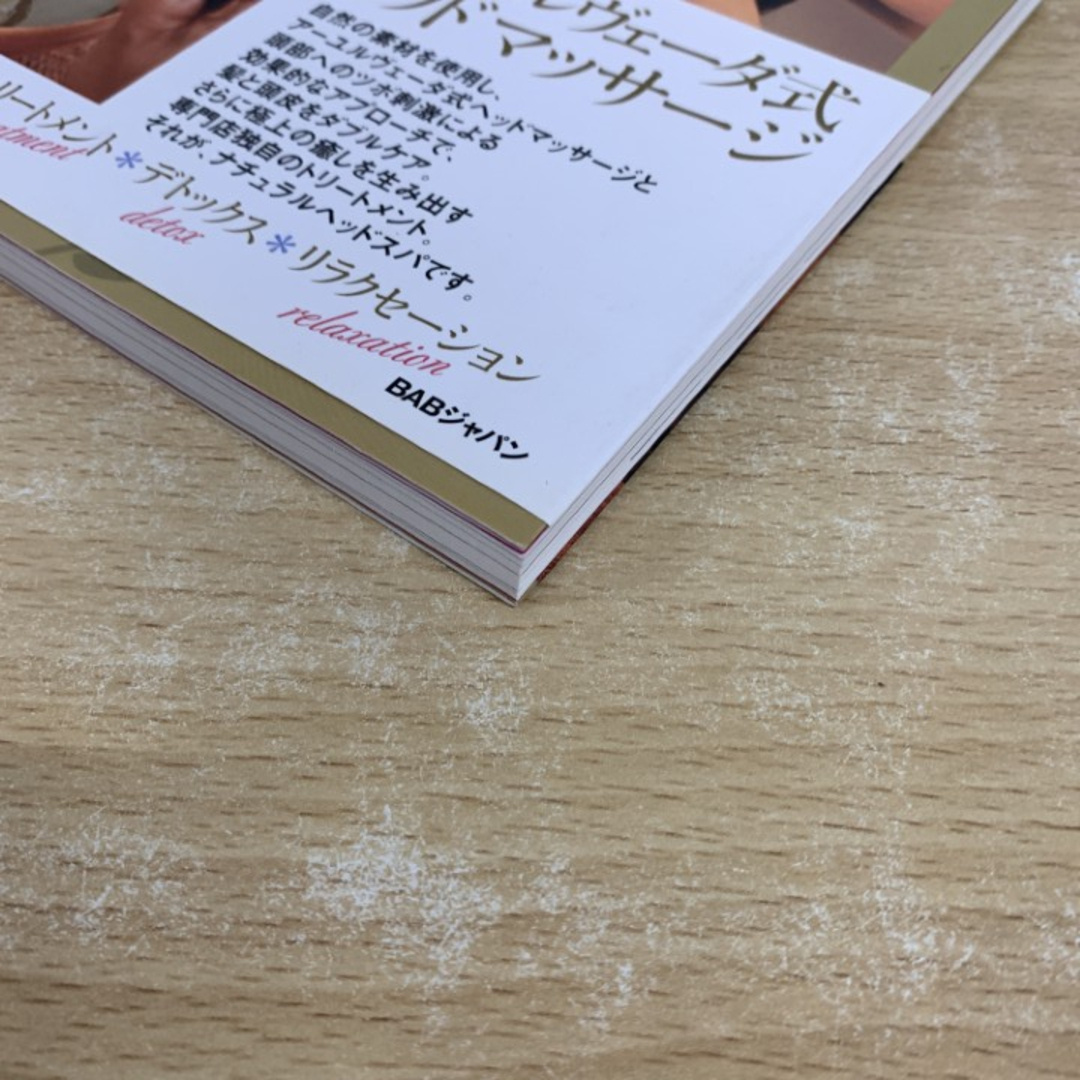 ルヴェーダ式
ドマッサージ
自然の素材を使用し、
アーユルヴェーダ式ヘッドマッサージと
頭部へのツボ刺激による
効果的なアプローチで、
髪と頭皮をダブルケア。
さらに極上の癒しを生み出す
専門店独自のトリートメント。
それが、ナチュラルヘッドスパです。
リートメント＊デトックス＊リラクセーション
atment detox relaxation
BABジャパン